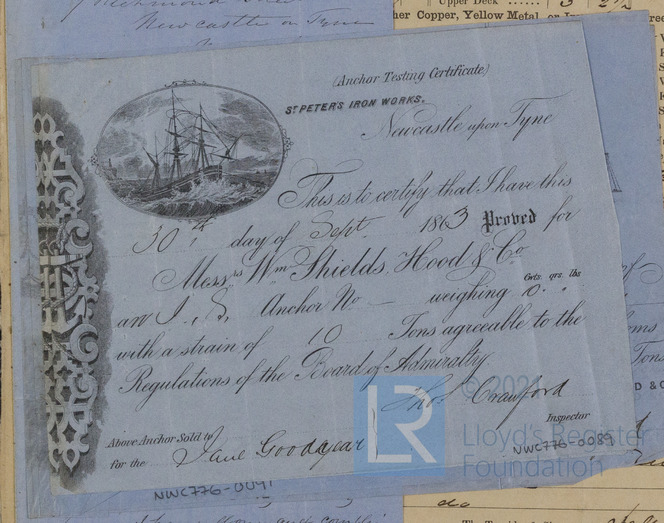 Newcastle on Tyne
Upper Deck ......
her Copper, Yellow Metal, or
(Anchor Testing Certificate)
ST PETER'S IRON WORKS.
Newcastle upon Tyne
This is to certify that I have this
30th day of Sept. 1863 Proved for
Messrs Wm Shields, Hood & Co
Cwts. qrs. lbs
an I. S. Anchor No — weighing 10 " "
with a strain of 10 Tons agreeable to the
Regulations of the Board of Admiralty
Thos Crawford
Inspector
Above Anchor Sold to
for the Jane Goodyear
NWC776-0089
NWC776-0091
LR © 2021
Lloyd's Register
Foundation
do